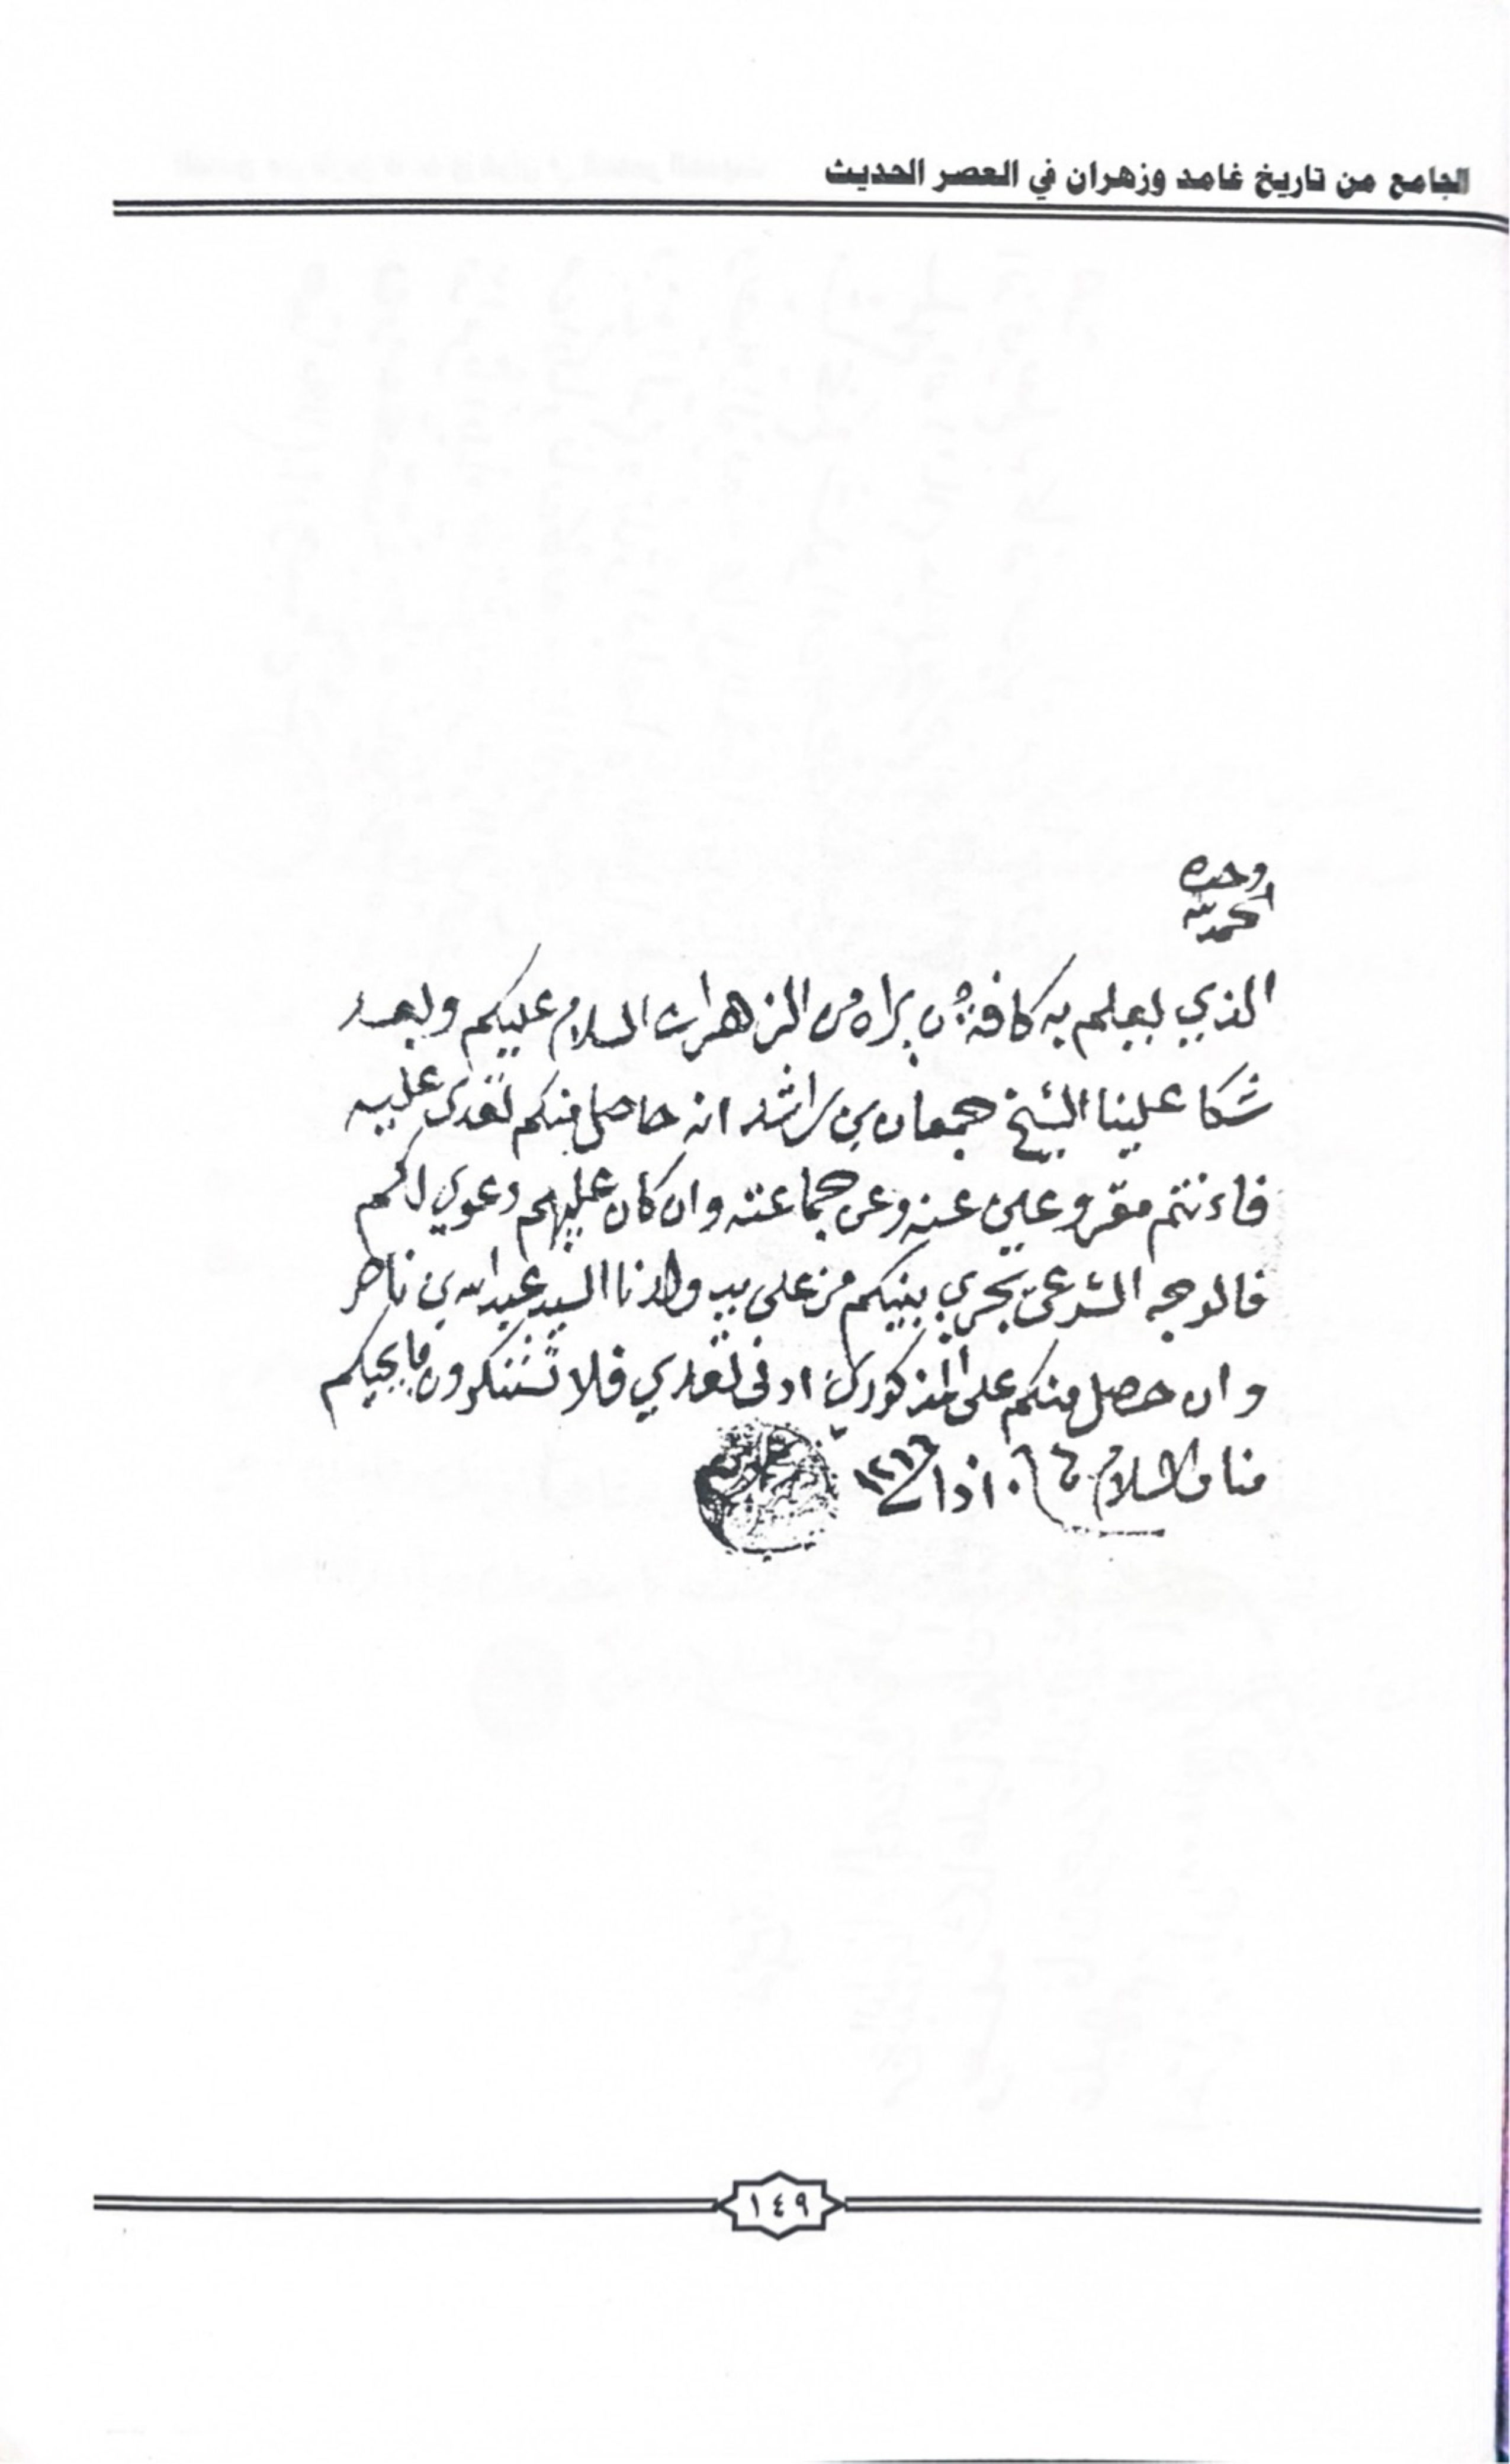 الجامع من تاريخ غامد وزهران في العصر الحديث
الحمد لله وحده
الذي يعلم به كافة من يراه من الزهران السلام عليكم وبعد
شكا علينا الشيخ جمعان بن راشد انه حاصل منكم تعدى عليه
فاءنتم مقروعين عنه وعن جماعته وان كان عليهم دعوي لكم
فالوجه الشرعي يجري بينكم من على يد ولدنا السيد عبدالله بن ناصر
وان حصل منكم على المذكورين ادنى تعدي فلا تستنكرون ما يجيكم
منا والسلام
١٤٩